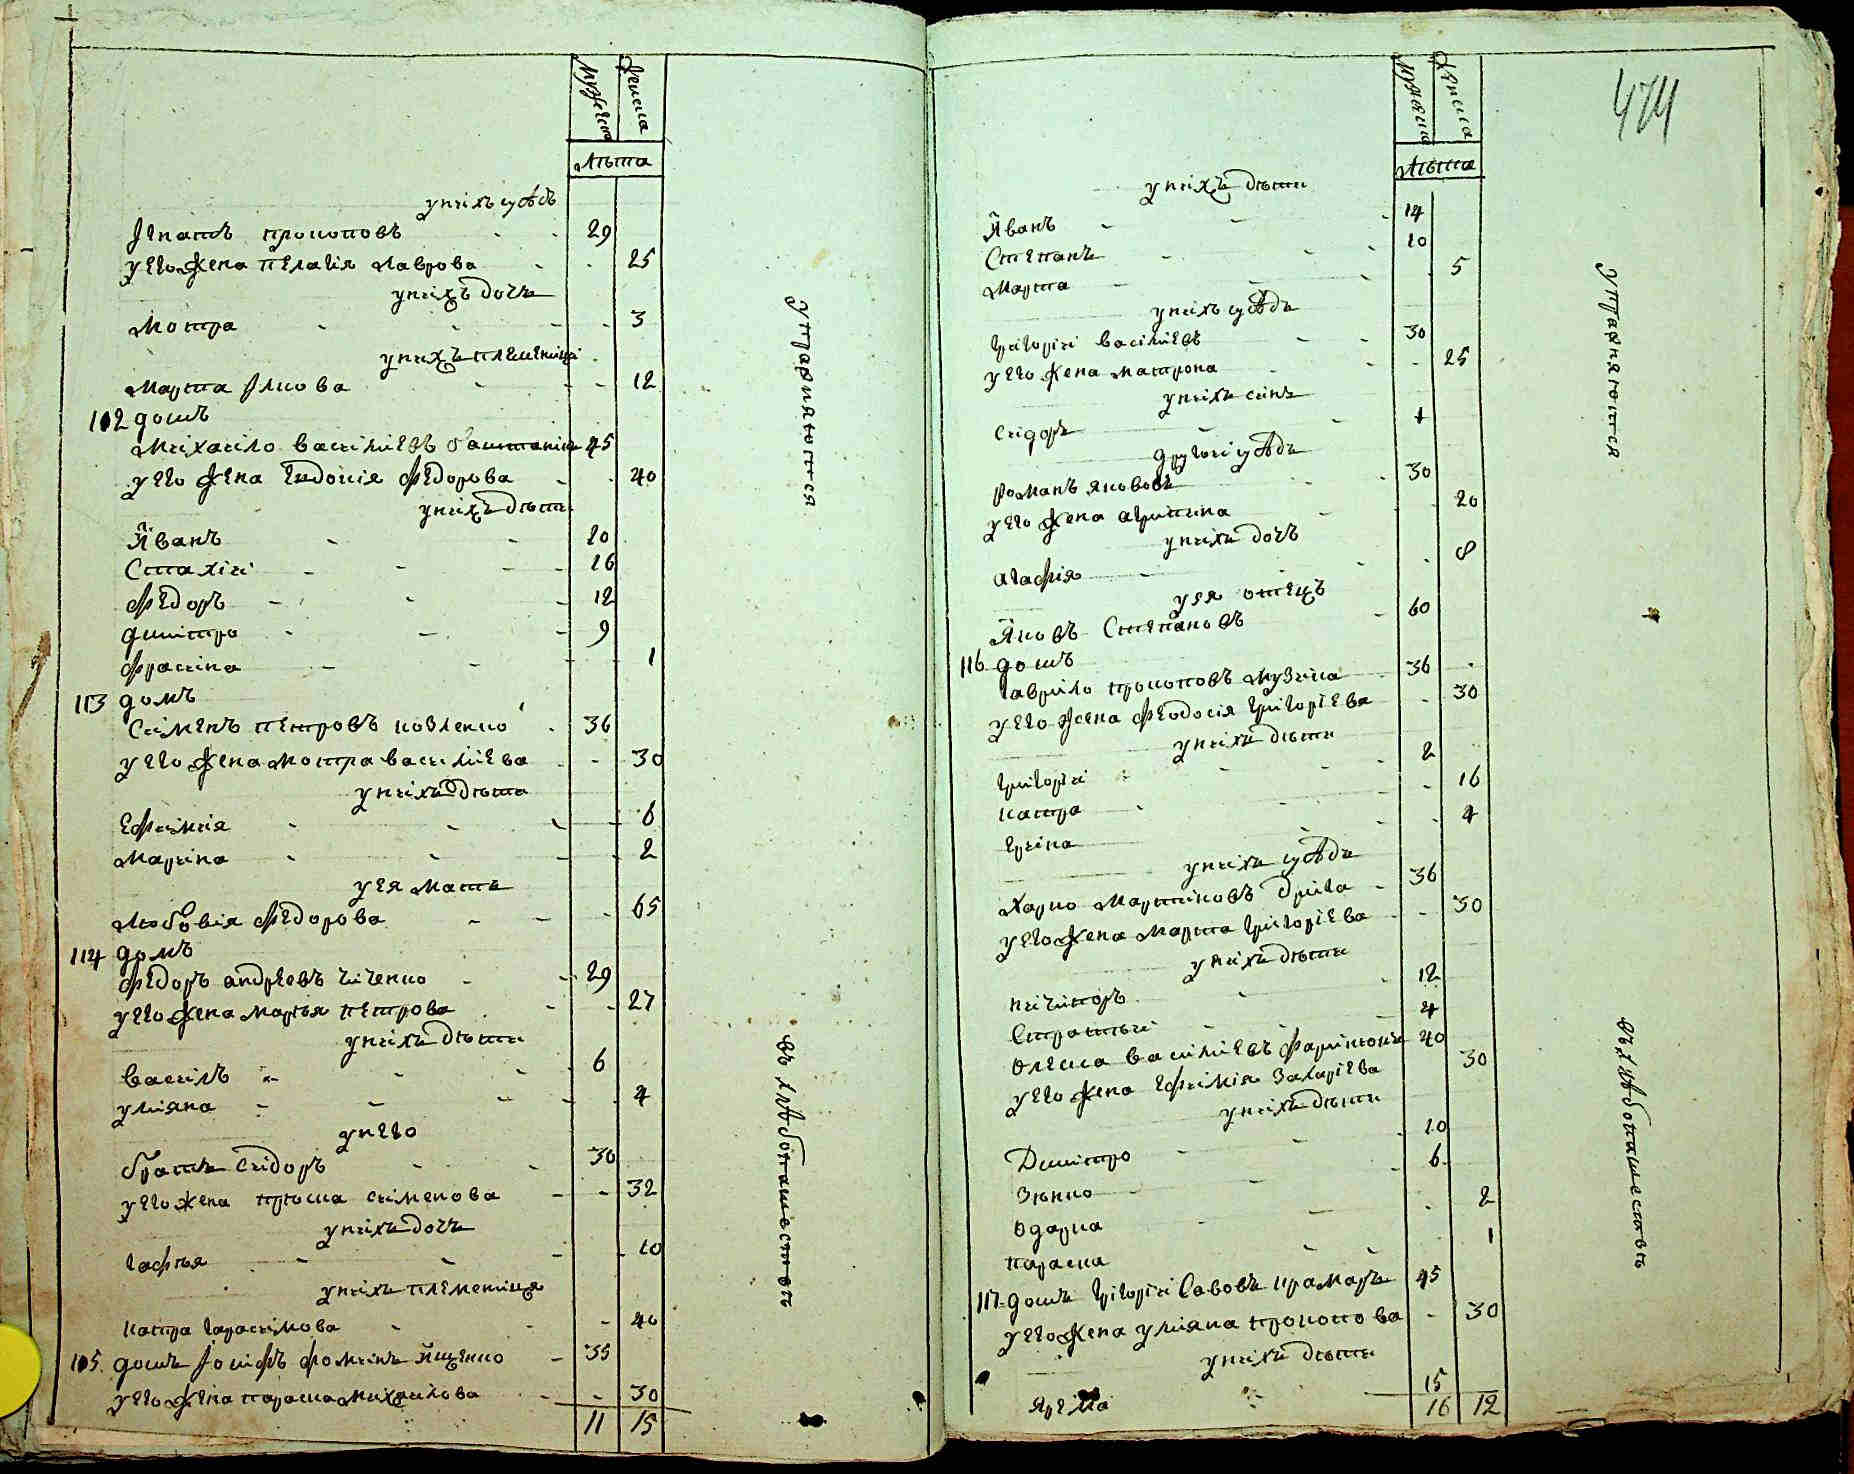 Мужеска женска
лѣта
у нихъ сусѣдъ
Игнатъ Прокоповъ 29
у его жена Пелагія Лаврова 25
у нихъ дочь
Мотра 3
у нихъ племениця
Марта 12
112 домъ
Михайло Василіевъ 45
у его жена Евдокія Федорова 40
у нихъ дѣти
Иванъ 20
Стахій 16
Федоръ 12
Дмитро 9
Фрасина 1
113 домъ
Сименъ Петровъ Козленко 36
у его жена Мотра Василіева 30
у нихъ дѣти
Ефимия 6
Марина 2
у ея мать
Любовія Федорова 65
114 домъ
Федоръ Андреевъ 29
у его жена Марья Петрова 27
у нихъ дѣти
Василъ 6
Уліяна 4
у него
братъ Сидоръ 30
у его жена Прюска Сименова 32
у нихъ дочь
Гафія 10
у нихъ племениця
Катра Гарасимова 40
115 домъ Иосифъ Фоминъ Ищенко 35
у его жена Параска Михайлова 30
11 15
упражняются
въ хлѣбопашествѣ
474
Мужеска женска
лѣта
у нихъ дѣти
Иванъ 14
Степанъ 10
Марта 5
у нихъ сусѣдъ
Григорій Василіевъ 30
у его жена Матрона 25
у нихъ синъ
Сидоръ 1
другой сусѣдъ
Романъ Якововъ 30
у его жена Агрипина 20
у нихъ дочъ
Агафія 8
у ея отецъ
Яковъ Степановъ 60
116 домъ
Гаврило Прокоповъ Музика 36
у его жена Феодосія Григоріева 30
у нихъ дѣти
Григорій 2
Катра 16
Ірина 4
у нихъ сусѣдъ
Харко Мартиновъ Дрига 36
у его жена Марта Григоріева 30
у нихъ дѣти
Ничипоръ 12
4
Олекса Василіевъ 40
у его жена Ефимія Захаріева 30
у нихъ дѣти
Дмитро 10
Зѣнко 6
Одарка 2
Параска 1
117 домъ Григорій Савовъ Крамаръ 45
у его жена Уліяна Прокопова 30
у нихъ дѣти
Ярема 15
16 12
упражняются
въ хлѣбопашествѣ